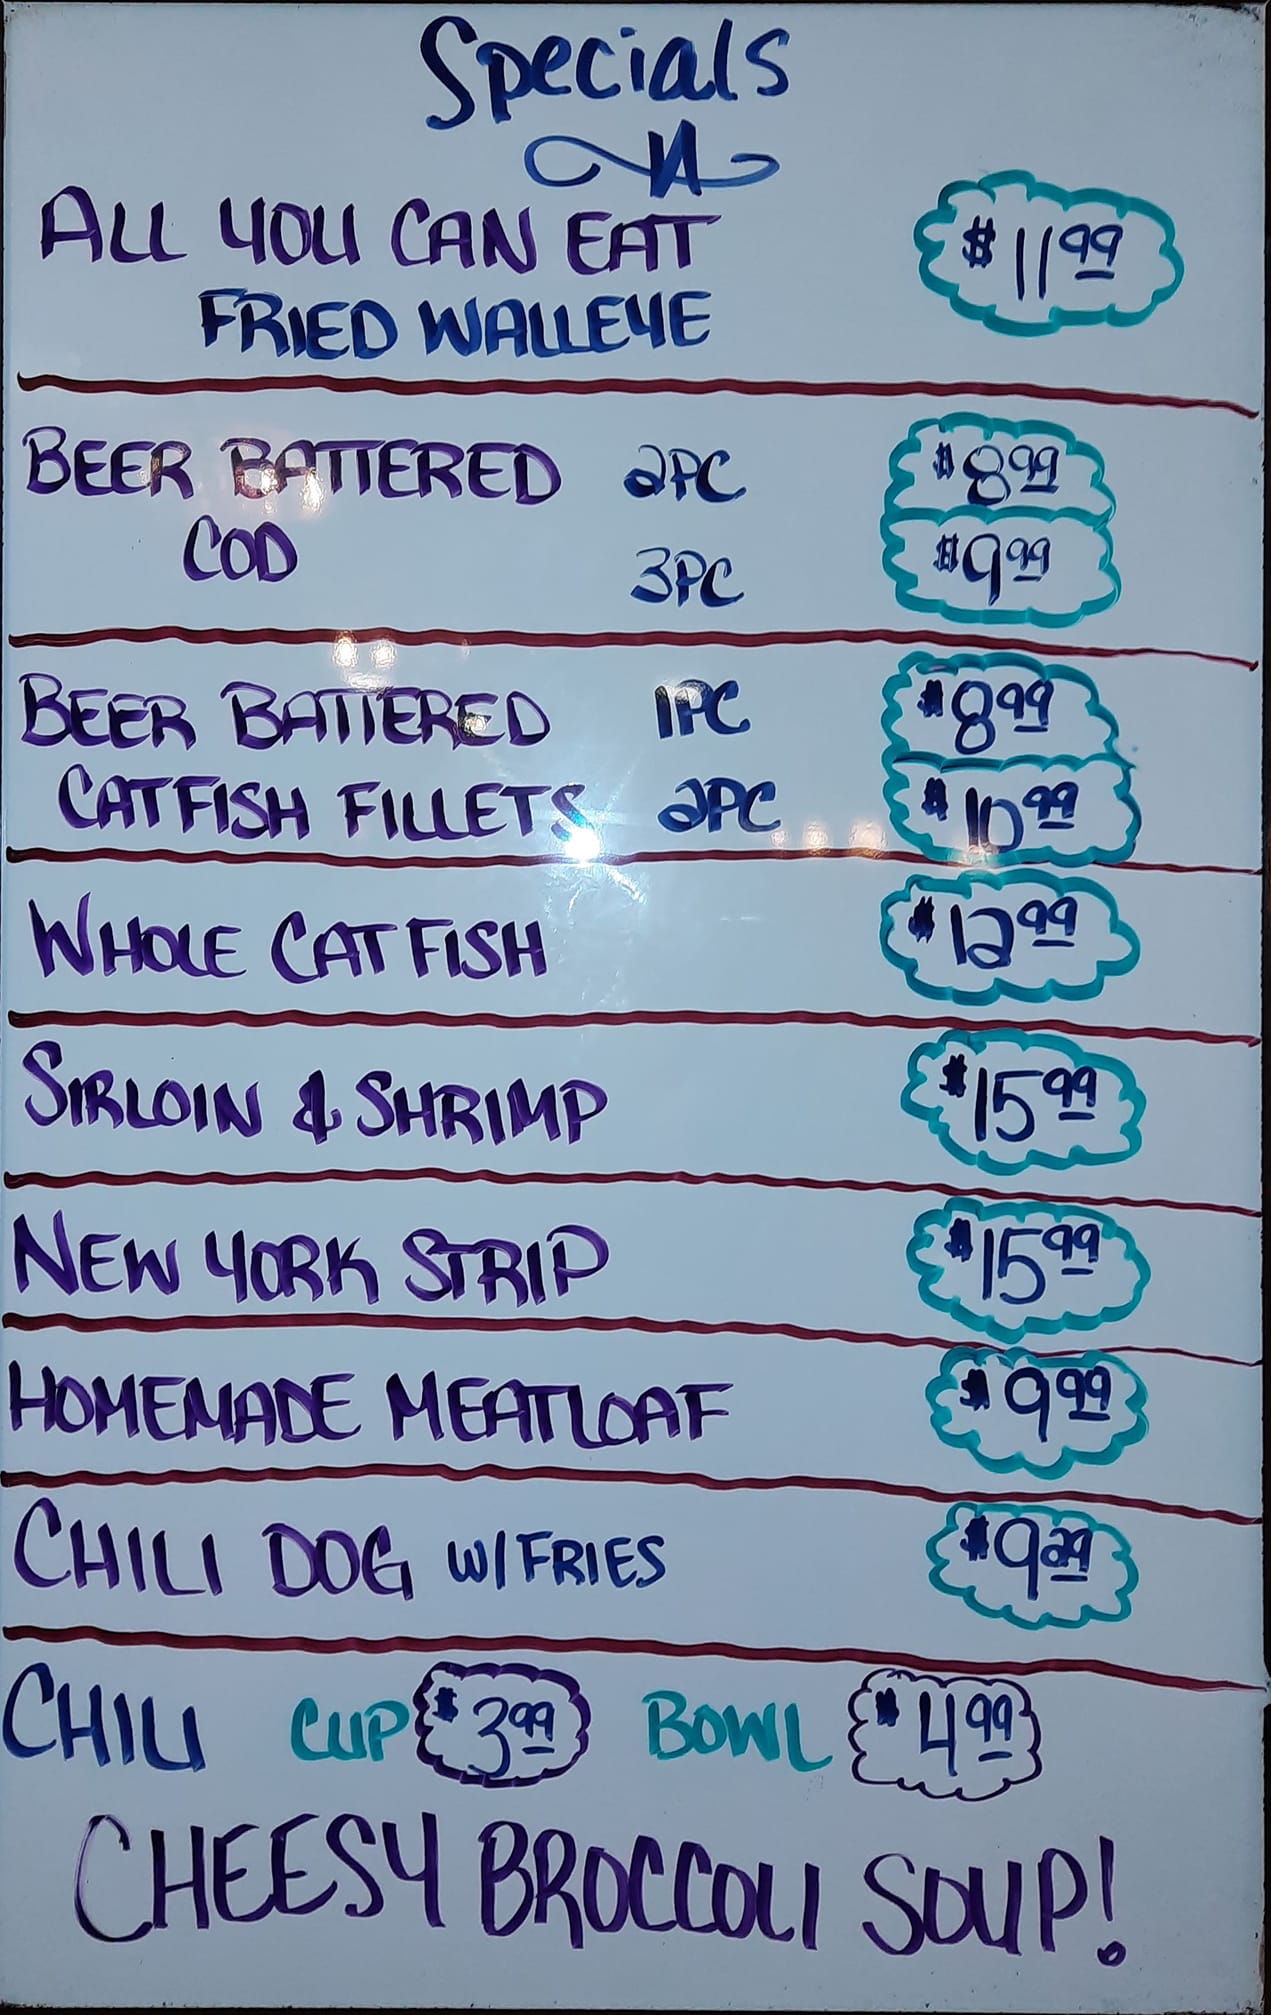 Specials
ALL YOU CAN EAT $11.99
FRIED WALLEYE
BEER BATTERED 2PC $8.99
COD 3PC $9.99
BEER BATTERED 1PC $8.99
CATFISH FILLETS 2PC $10.99
WHOLE CATFISH $12.99
SIRLOIN & SHRIMP $15.99
NEW YORK STRIP $15.99
HOMEMADE MEATLOAF $9.99
CHILI DOG W/FRIES $9.29
CHILI CUP $3.99 BOWL $4.99
CHEESY BROCCOLI SOUP!